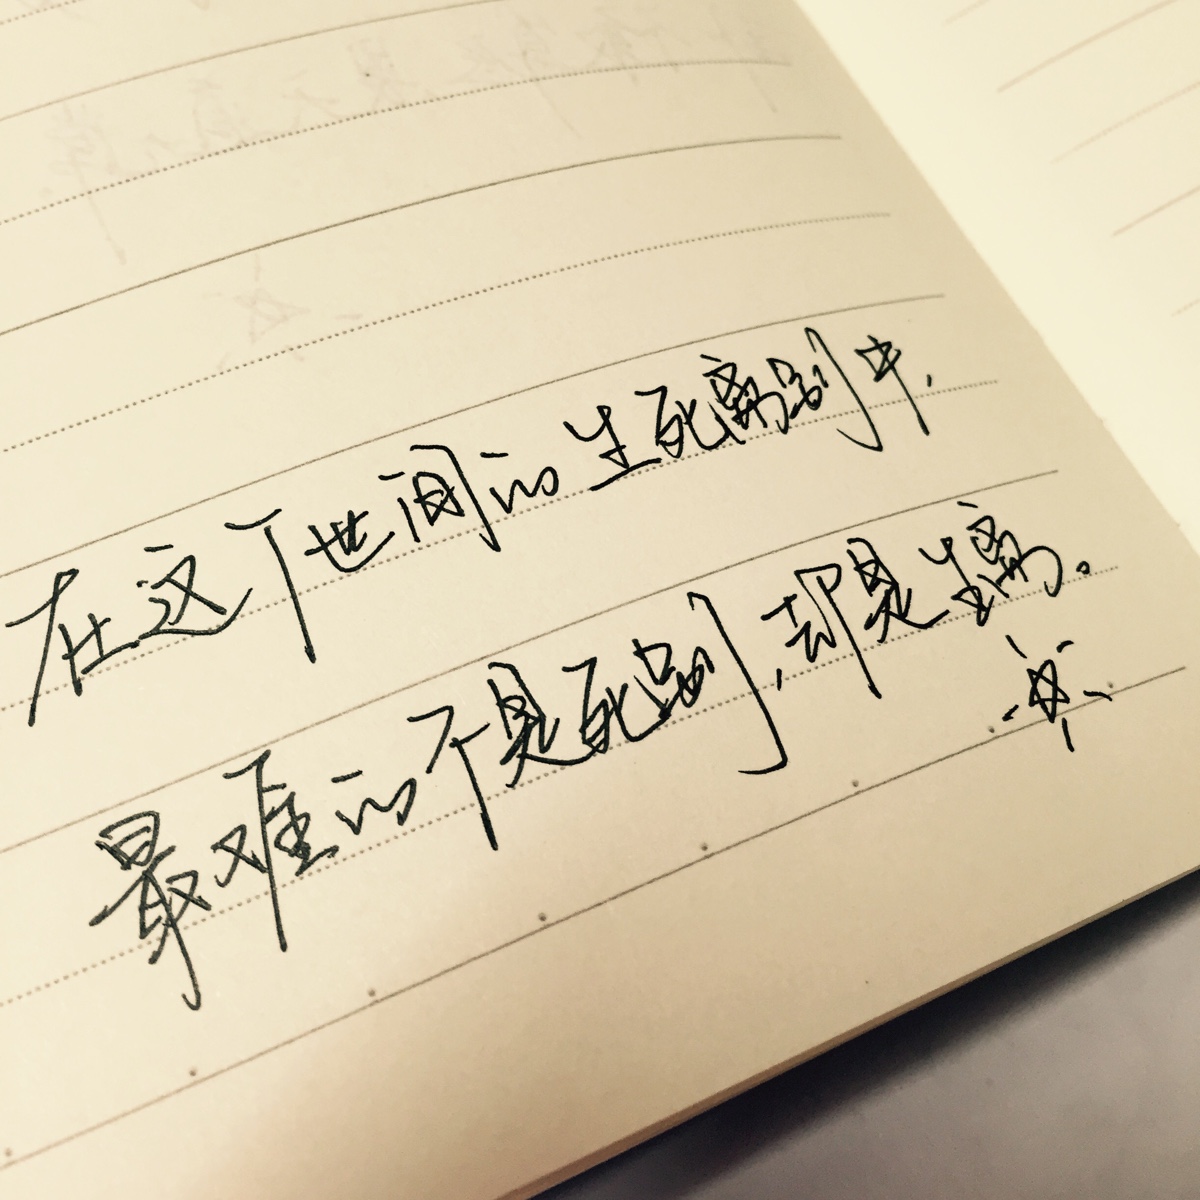 在这个世间的生死离别中，
最难的不是死别，却是生离。